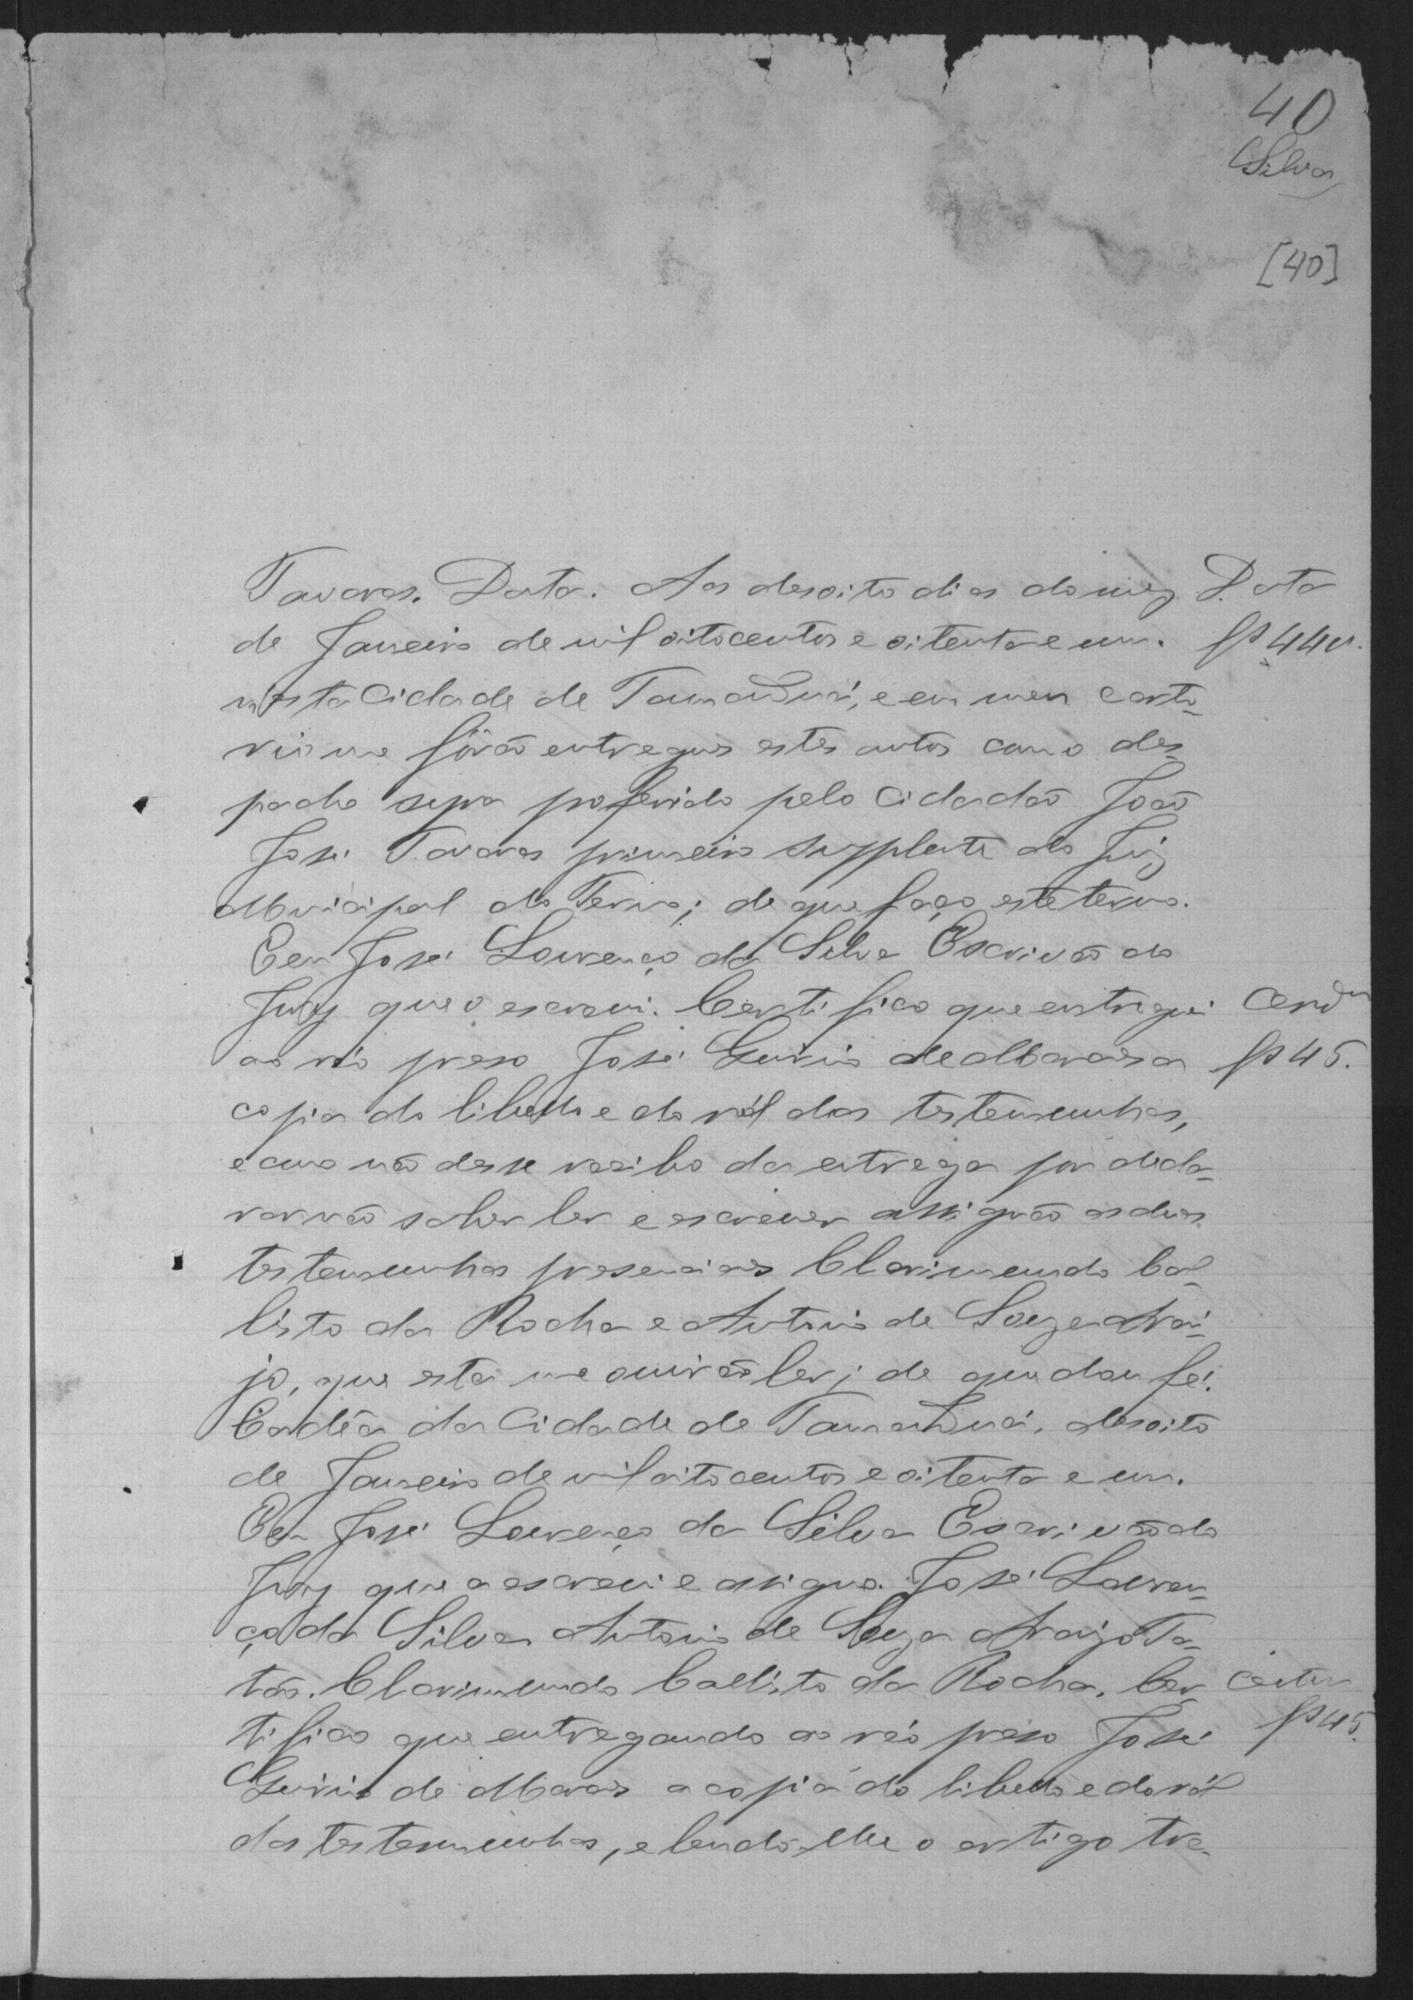 40
Silva
[40]
Tavares. Data. Aos desoito dias do mez
Data
de Janeiro de mil oitocentos e oitenta e um.
fs 44v.
nesta Cidade de Tamanduá, e em meu carto-
rio me fôrão entregues estes autos com o des-
pacho supra proferido pelo Cidadão João
José Tavares primeiro Supplente do Juiz
Municipal do Termo; de que faço este termo.
Eu José Lourenço da Silva Escrivão do
Jury que o escrevi. Certifico que entreguei
ao réo preso José
de Moraes a
fs 45.
copia do libello e do ról das testemunhas,
e como não desse recibo da entrega por decla-
rar não saber ler e escrever assignão as duas
testemunhas presenciaes Clarimundo Cal-
listo da Rocha e Antonio de Souza Arau-
jo, que esta me ouvirão ler; de que dou fé.
Cadêa da Cidade de Tamanduá, desoito
de Janeiro de mil oitocentos e oitenta e um.
Eu José Lourenço da Silva Escrivão do
Jury que a escrevi e assigno. José Louren-
ço da Silva Antonio de Souza Araujo Ta-
tão. Clarimundo Callisto da Rocha. Cer-
tifico que entregando ao réo preso José
fs 45.
de Moraes a copia do libello e do ról
das testemunhas, e lendo-lhe o artigo tre-